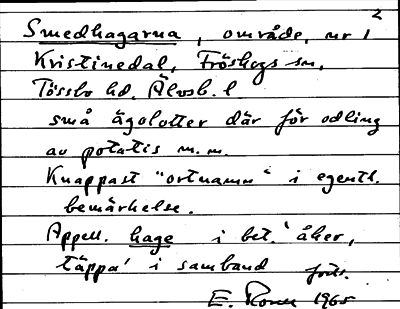 2
Smedhagarna, område, nr 1
Kristinedal, Fröskogs sn,
Tössbo hd. Älvsb. l
små ägolotter där för odling
av potatis m.m.
Knappast "ortnamn" i egentl.
bemärkelse.
Appell. hage i bet. 'åker,
täppa' i samband forts.
E. Rosell 1965